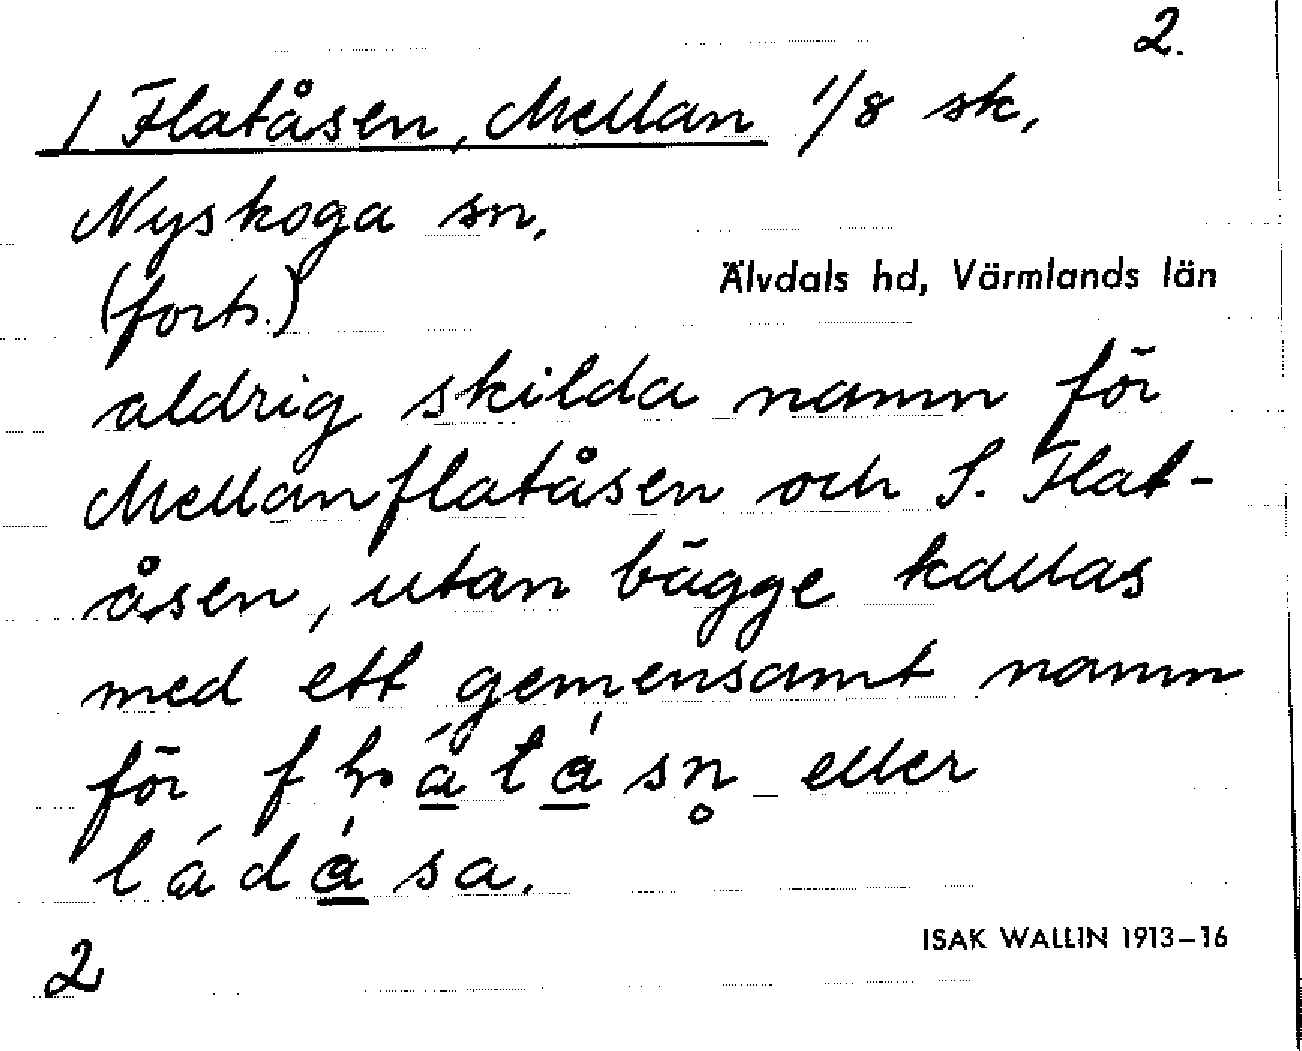 2.
/ Flatåsen, Mellan 1/8 sk,
Nyskoga sn.
Älvdals hd, Värmlands län
(forts.)
aldrig skilda namn för
Mellanflatåsen och S. Flat-
åsen, utan bägge kallas
med ett gemensamt namn
för eller
ládása.
2
ISAK WALLIN 1913–16